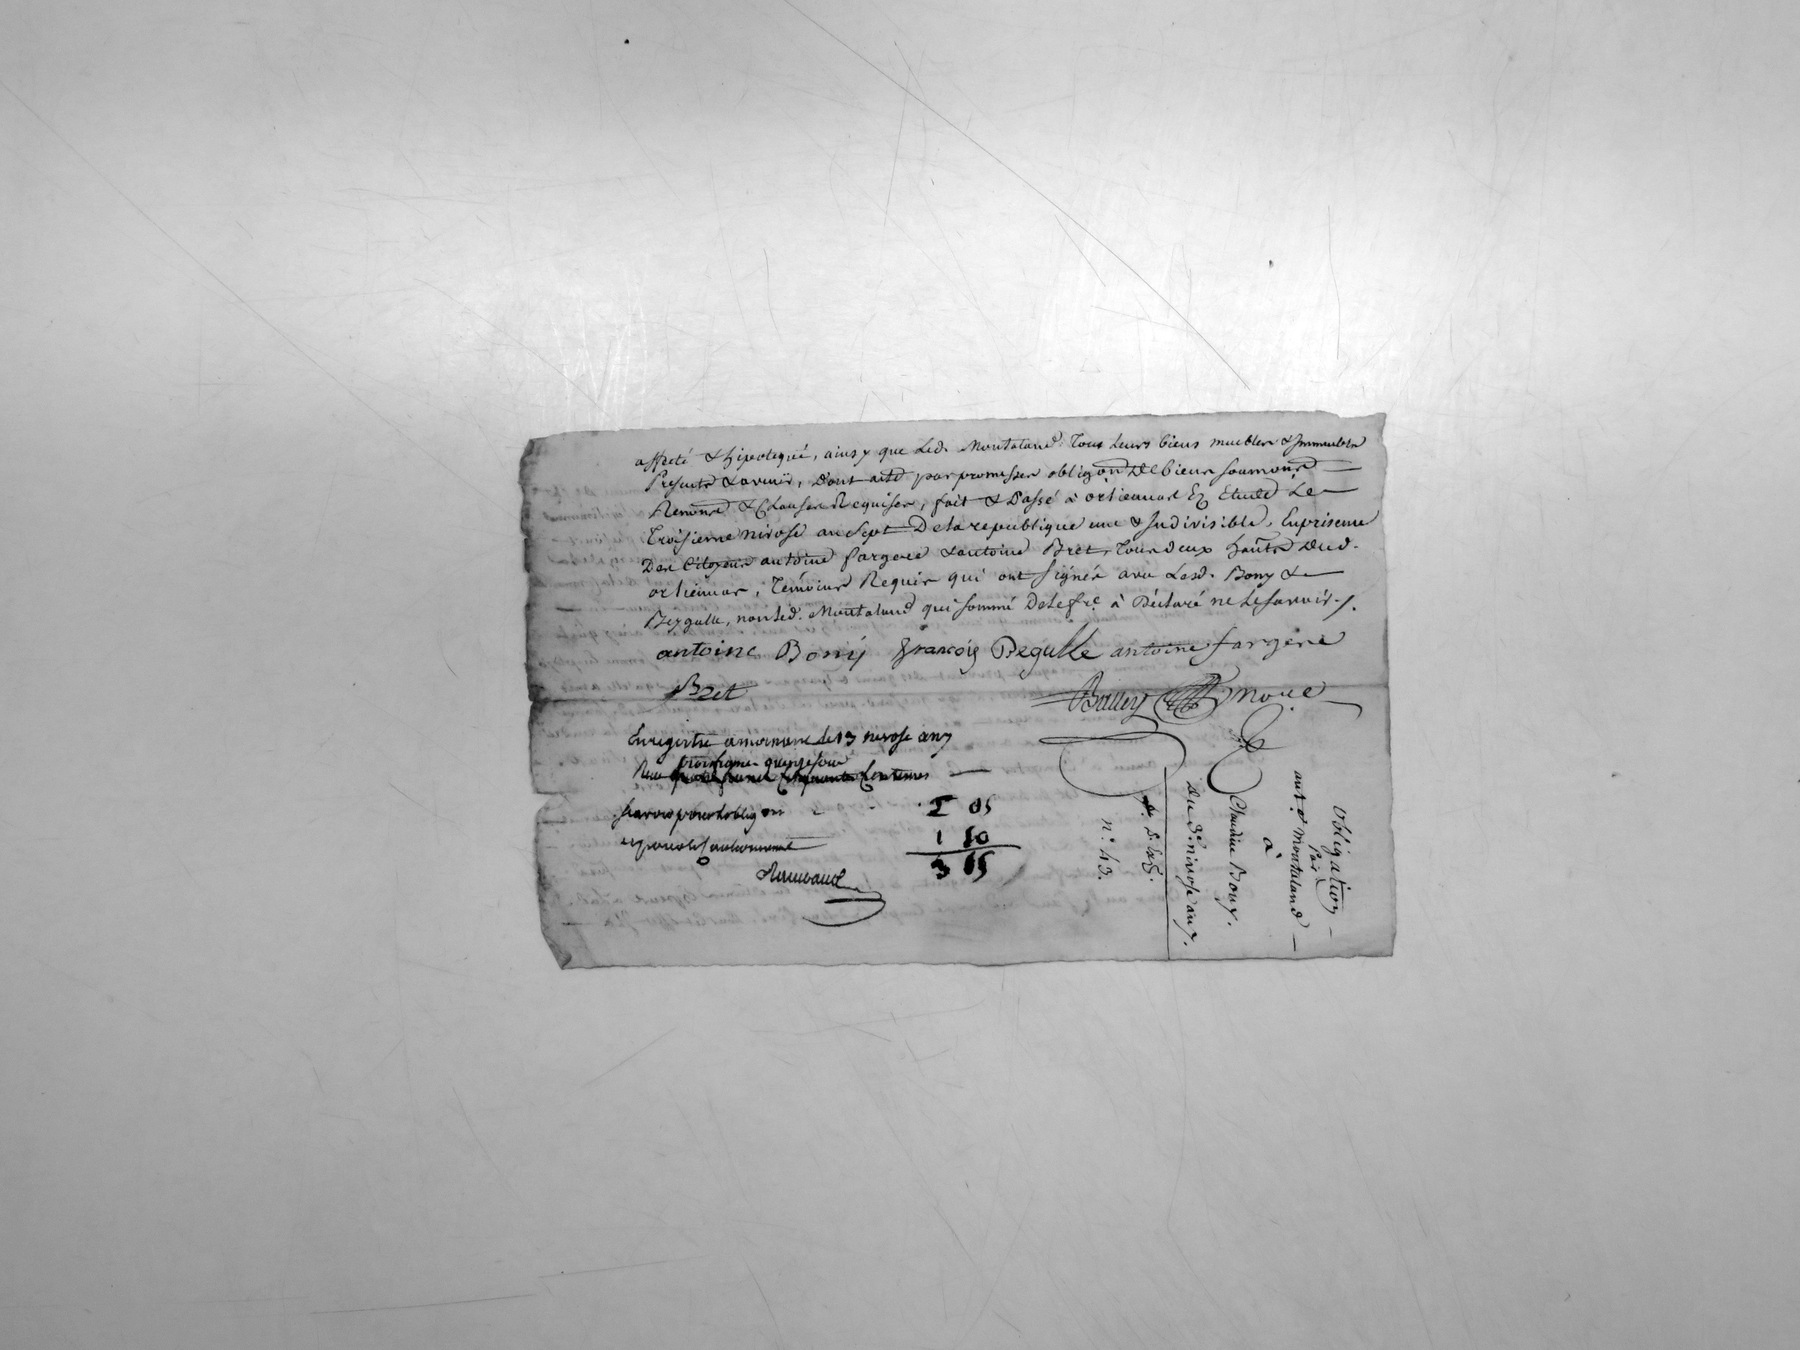 affecté & hipotequé, ainsy que led. Montaland, tous leurs biens meubles & Immeubles
Presents & avenir, Dont acte par promesses obligon De biens soumons
Renons & Clauses Requises, fait & Passé à ortiennas Ez Etude Le
Troisieme nivose an sept De la republique une & Indivisible, En presence
Des Citoyens antoine fargere & antoine Bret, Tous deux habts Dud.
ortiennas, Temoins Requis qui ont signés avec Lesd. Bony &
Beygulle, non led. Montaland qui sommé De le fre. à Déclaré ne le savoir ./.
antoine Bony françois Begulle antoine fargere
Bret
Balley Nore
Enregistré a le 13 nivose an 7
Reçu Centimes
savoir pour l'obligon 2 05
et pour le cautionnement 1 10
3 15
Obligation
Par
ant.e Montaland
à
Claudine Bony.
Du 3e. nivose an 7.
n.° 43.